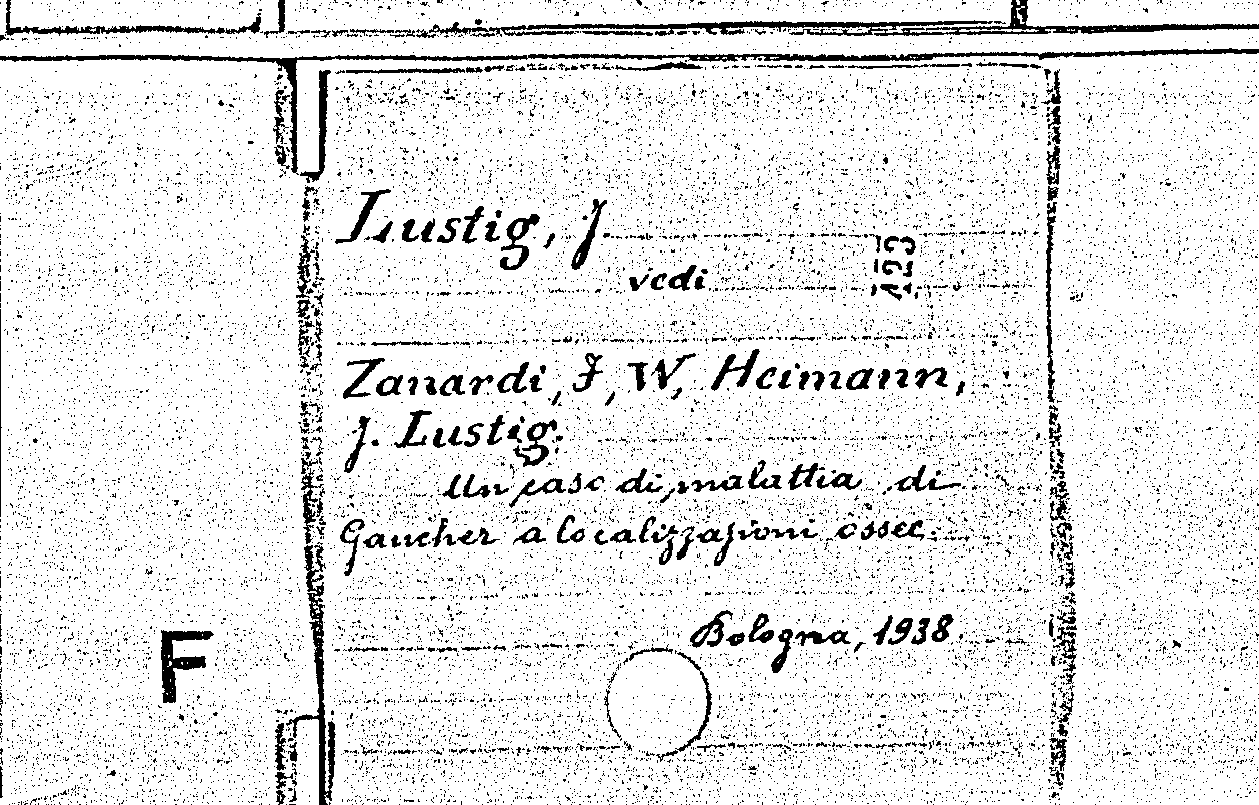 Lustig, J.
vedi
123
Zanardi, J, W, Heimann,
J. Lustig.
Un caso di malattia di
Gaucher a localizzazioni ossee.
Bologna, 1938.
F